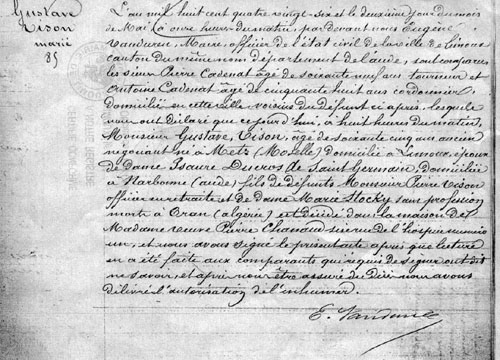 Gustave
Vison
marié
85
L'an mil huit cent quatre vingt-six et le deuxième jour du mois
de Mai à onze heures du matin, par devant nous Eugène
Maire, officier de l'état civil de la ville de Limoux
canton du même nom département de l'aude, sont comparus
les sieurs Pierre Cadenat âgé de soixante neuf ans tourneur et
Antoine Cadenat âgé de cinquante huit ans cordonnier
domiciliés en cette ville voisins du défunt ci après, lesquels
nous ont déclaré que ce jourd'hui, à huit heures du matin,
Monsieur Gustave Vison, âgé de soixante cinq ans ancien
négociant né à Metz (Moselle) domicilié à Limoux, époux
de Dame Isaure Ducros de Saint Germain, domiciliée
à Narbonne (aude) fils de défunts Monsieur Pierre Vison
officier en retraite et de dame Marie Stocky sans profession
morts à Oran (algérie) est décédé dans la maison de
Madame veuve Pierre Chanaud sise rue de l'hospice numéro
un, et nous avons signé le présent acte après que lecture
en a été faite aux comparants qui requis de signer ont dit
ne savoir, et après nous être assuré du décès nous avons
délivré l'autorisation de l'inhumer.
E.